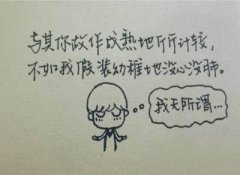 与其你故作成熟地斤斤计较,
不如我假装幼稚地没心没肺。
我无所谓...